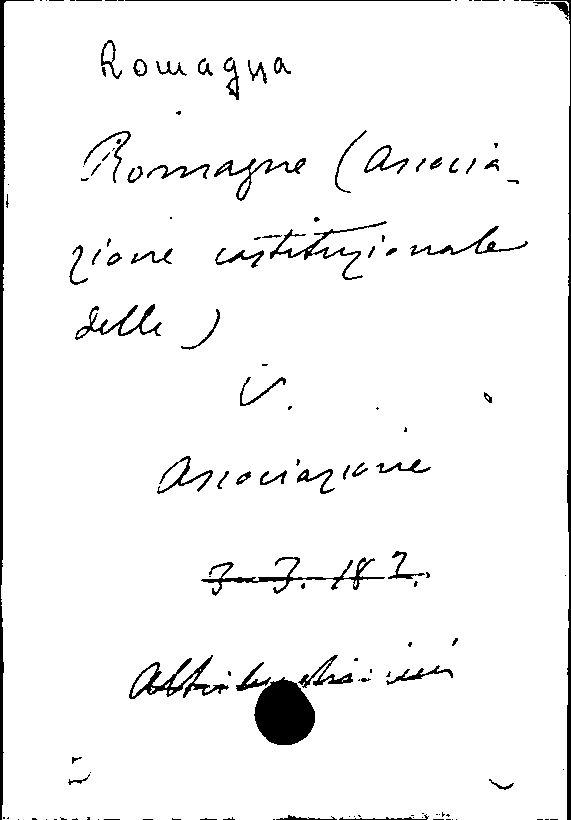 Romagna
Romagne (Associa-
zione costituzionale
delle)
V.
Associazione
3-3. 18 7.